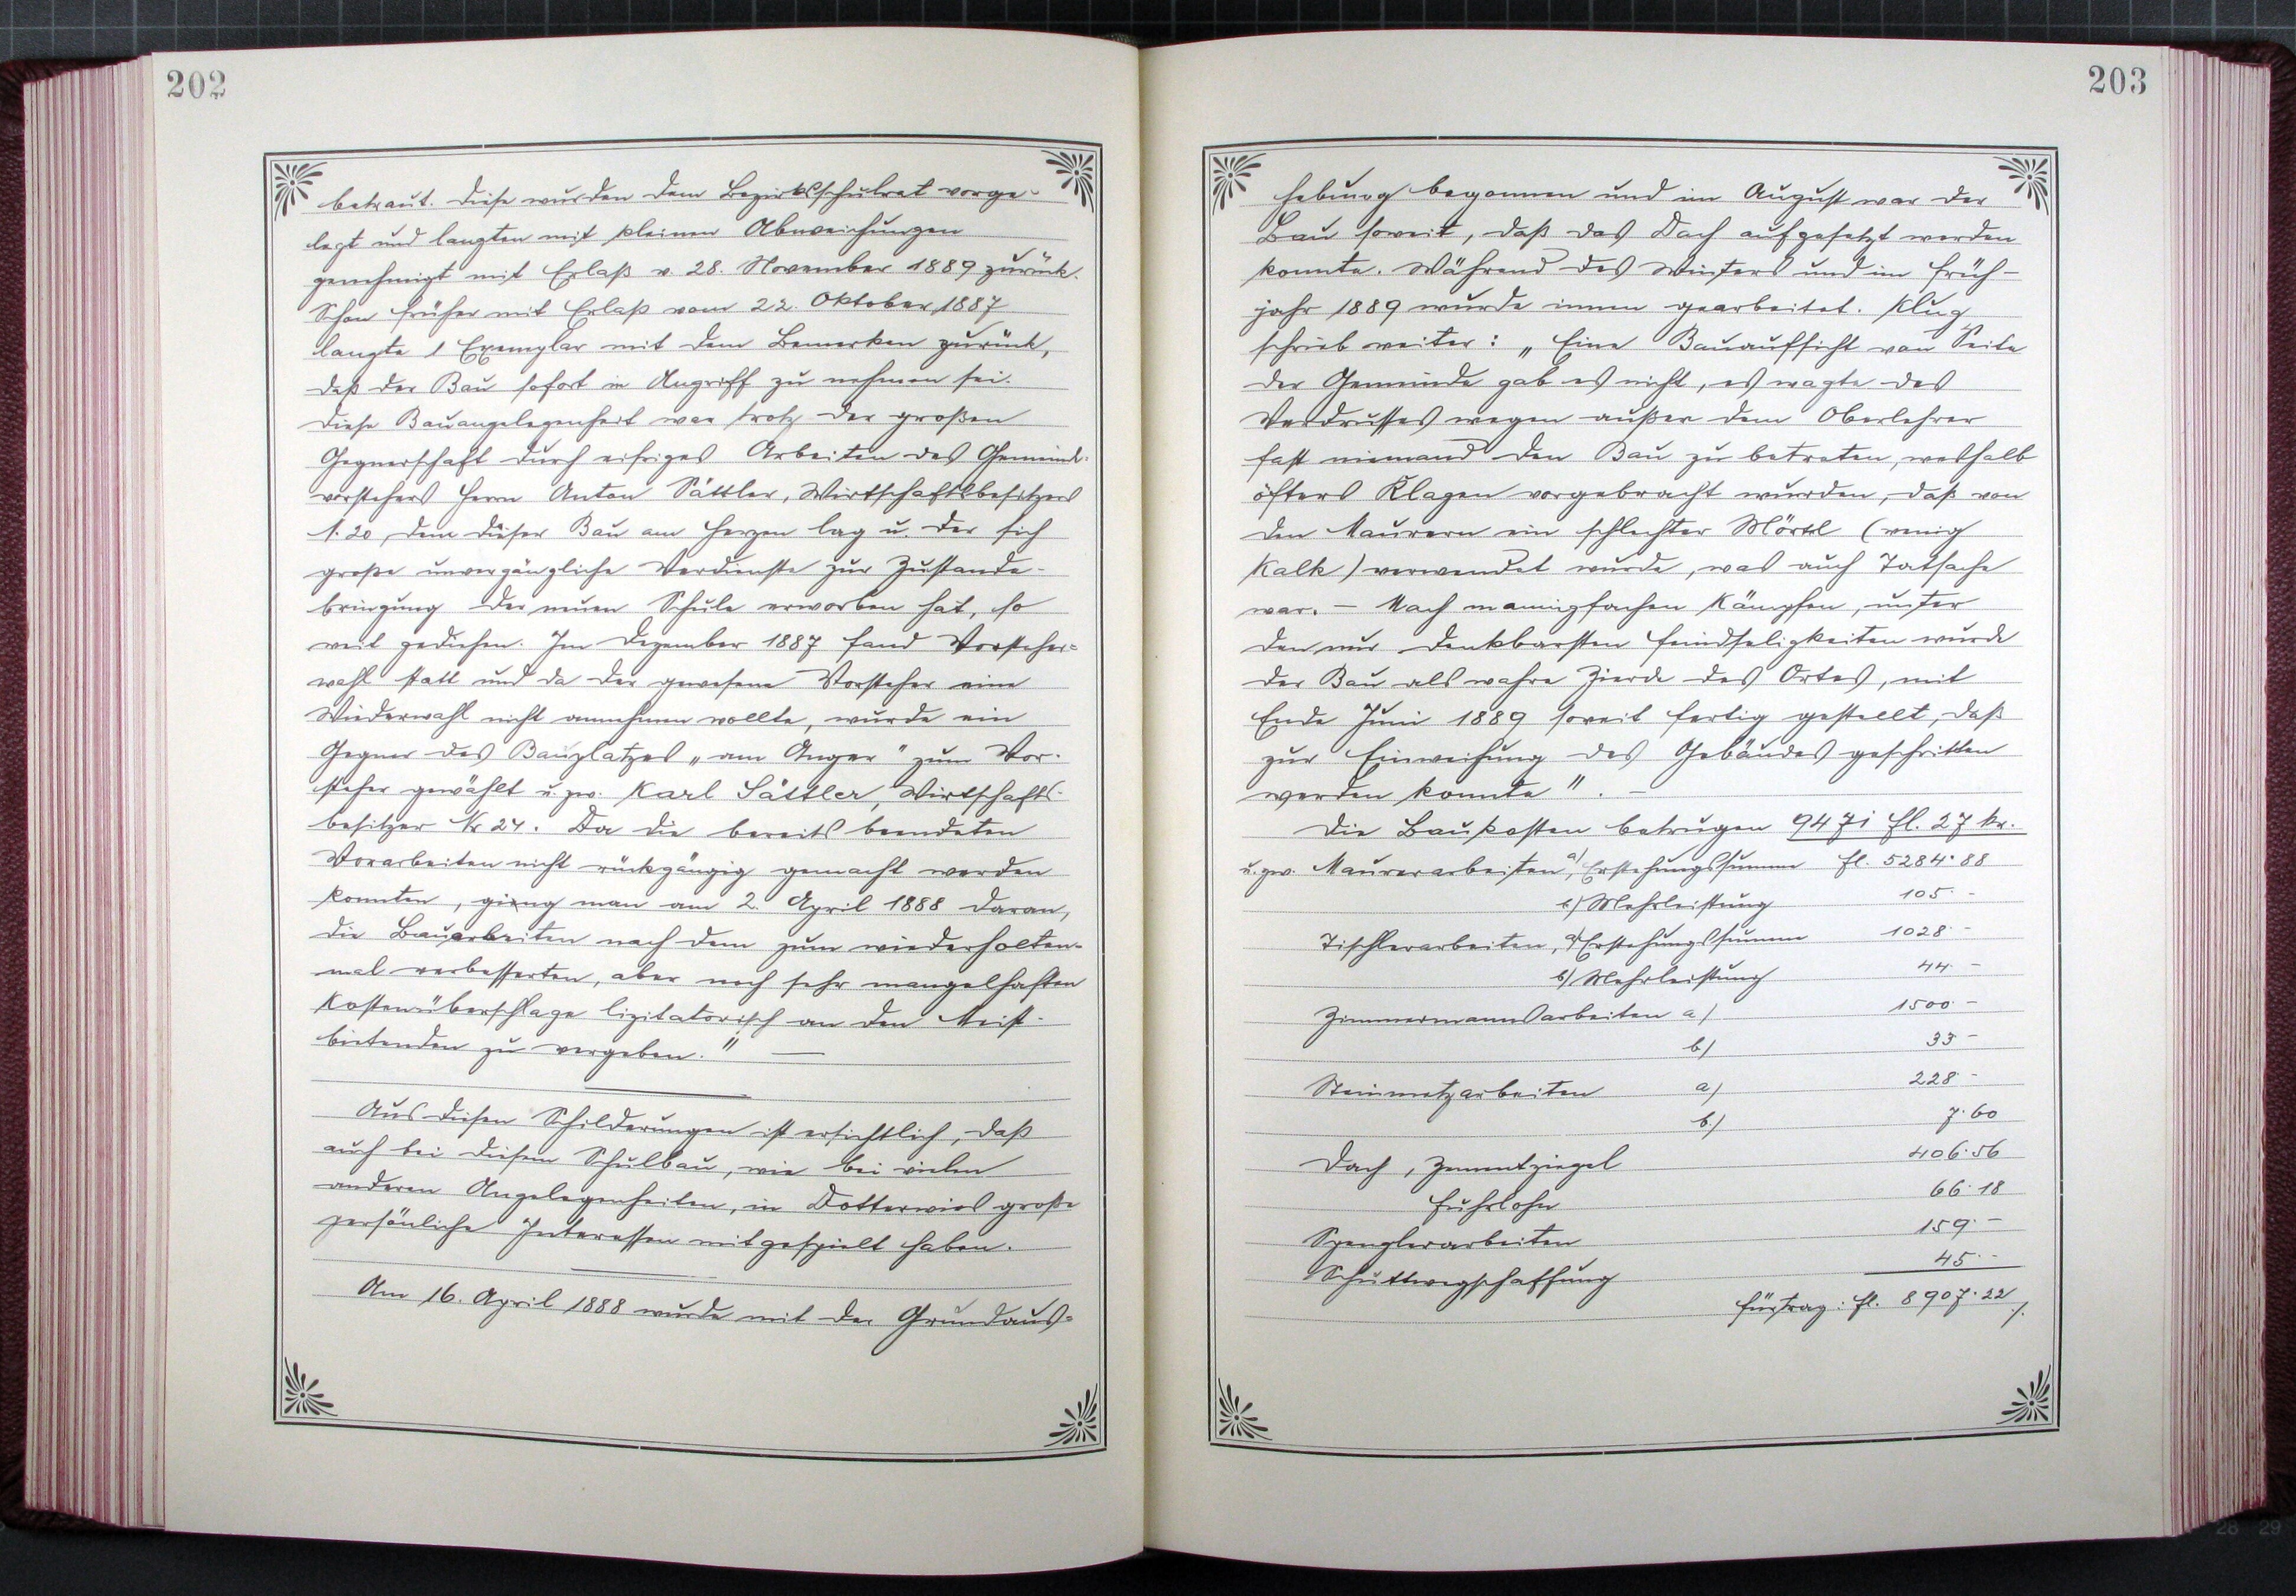 202
betraut. Diese wurden dem Bezirksschulrat vorge-
legt und langten mit kleinen Abweichungen
genehmigt mit Erlaß v. 28. November 1889 zurück.
Schon früher mit Erlaß vom 22. Oktober 1887
langte 1 Exemplar mit dem Bemerken zurück,
daß der Bau sofort in Angriff zu nehmen sei.
Diese Bauangelegenheit war trotz der großen
Gegnerschaft durch eifriges Arbeiten des Gemeinde-
vorstehers Herrn Anton Sättler, Wirtschaftsbesitzers
N. 20, dem dieser Bau am Herzen lag u. der sich
große unvergängliche Verdienste zur Zustande-
bringung der neuen Schule erworben hat, so
weit gediehen. Im Dezember 1887 fand Vorsteher=
wahl statt und da der gewesene Vorsteher eine
Wiederwahl nicht annehmen wollte, wurde ein
Gegner des Bauplatzes „am Anger" zum Vor-
steher gewählt u. zw. Karl Sättler, Wirtschafts-
besitzer Nr 24. Da die bereits beendeten
Vorarbeiten nicht rückgängig gemacht werden
konnten, gieng man am 2. April 1888 daran,
die Bauarbeiten nach dem zum wiederholten-
mal verbesserten, aber noch sehr mangelhaften
Kostenüberschlage lizitatorisch an den Meist-
bietenden zu vergeben." —
Aus diesen Schilderungen ist ersichtlich, daß
auch bei diesem Schulbau, wie bei vielen
anderen Angelegenheiten, in Dotterwies große
persönliche Interessen mitgespielt haben.
Am 16. April 1888 wurde mit der Grundaus=
203
hebung begonnen und im August war der
Bau soweit, daß das Dach aufgesetzt werden
konnte. Während des Winters und im Früh-
jahr 1889 wurde innen gearbeitet. Klug
schrieb weiter: „Eine Bauaufsicht von Seite
der Gemeinde gab es nicht, es wagte des
Verdrusses wegen außer dem Oberlehrer
fast niemand den Bau zu betreten, weshalb
öfters Klagen vorgebracht wurden, daß von
den Maurern ein schlechter Mörtel (wenig
Kalk) verwendet wurde, was auch Tatsache
war. – Nach mannigfachen Kämpfen, unter
den nur denkbarsten Feindseligkeiten wurde
der Bau als wahre Zierde des Ortes, mit
Ende Juni 1889 soweit fertig gestellt, daß
zur Einweihung des Gebäudes geschritten
werden konnte". –
Die Baukosten betrugen 9471 fl. 27 kr.
u. zw. Maurerarbeiten, a) Erstehungssumme fl. 5284·88
b) Mehrleistung 105·-
Tischlerarbeiten, a) Erstehungssumme 1028·-
b) Mehrleistung 44·-
Zimmermannsarbeiten a) 1500·-
b) 33·-
Steinmetzarbeiten a) 228·-
b.) 7·60
Dach, Zementziegel 406·56
Fuhrlohn 66·18
Spenglerarbeiten 159·-
Schuttwegschaffung 45·-
Fürtrag: fl. 8907·22 ./.
28 29